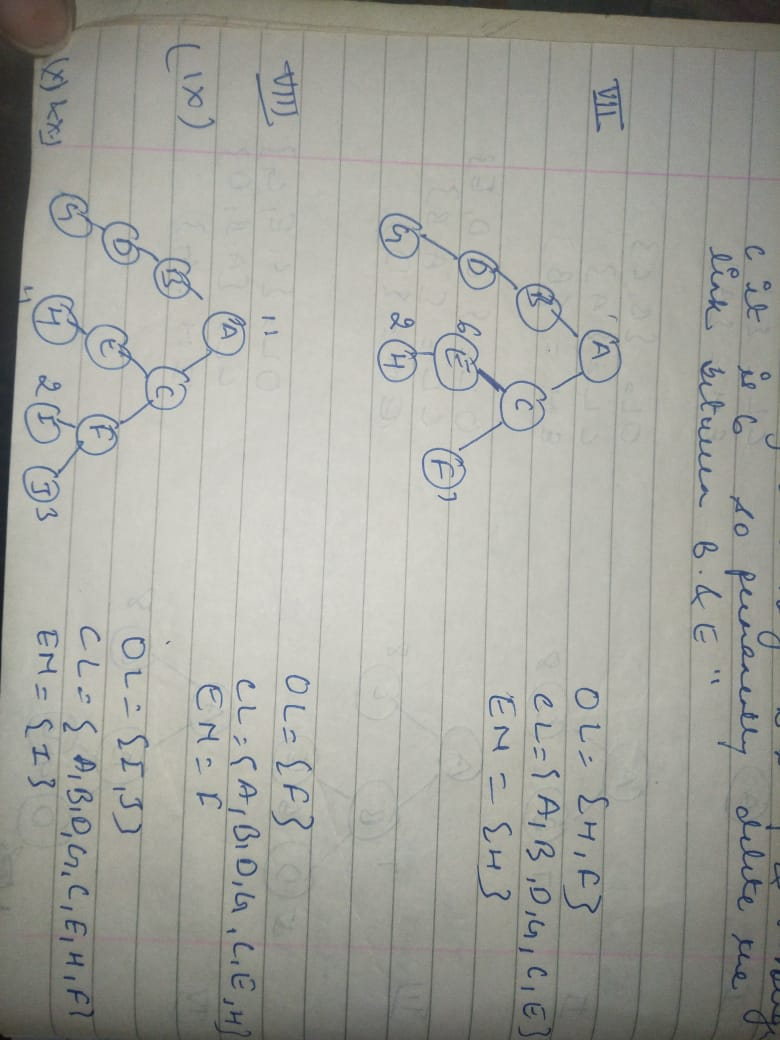 c it is 6 so permanently delete the
link between B & E"
VII
A
B
C
D
6 E
F 3
G
2 H
OL = {H, F}
CL = {A, B, D, G, C, E}
EN = {H}
VIII
OL = {F}
CL = {A, B, D, G, C, E, H}
EN = F
(IX)
"
A
B
C
D
E
F
G
H
2 I
J 3
OL = {I, J}
CL = {A, B, D, G, C, E, H, F}
EN = {I}
(X)